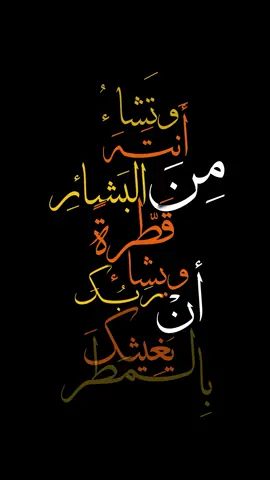 وَتَشاءُ
أَنتَ
مِنَ البَشائِرِ
قَطْرةً
ويشاءُ
رَبُّكَ أنْ
يَغيثَكَ
بِالمطَر